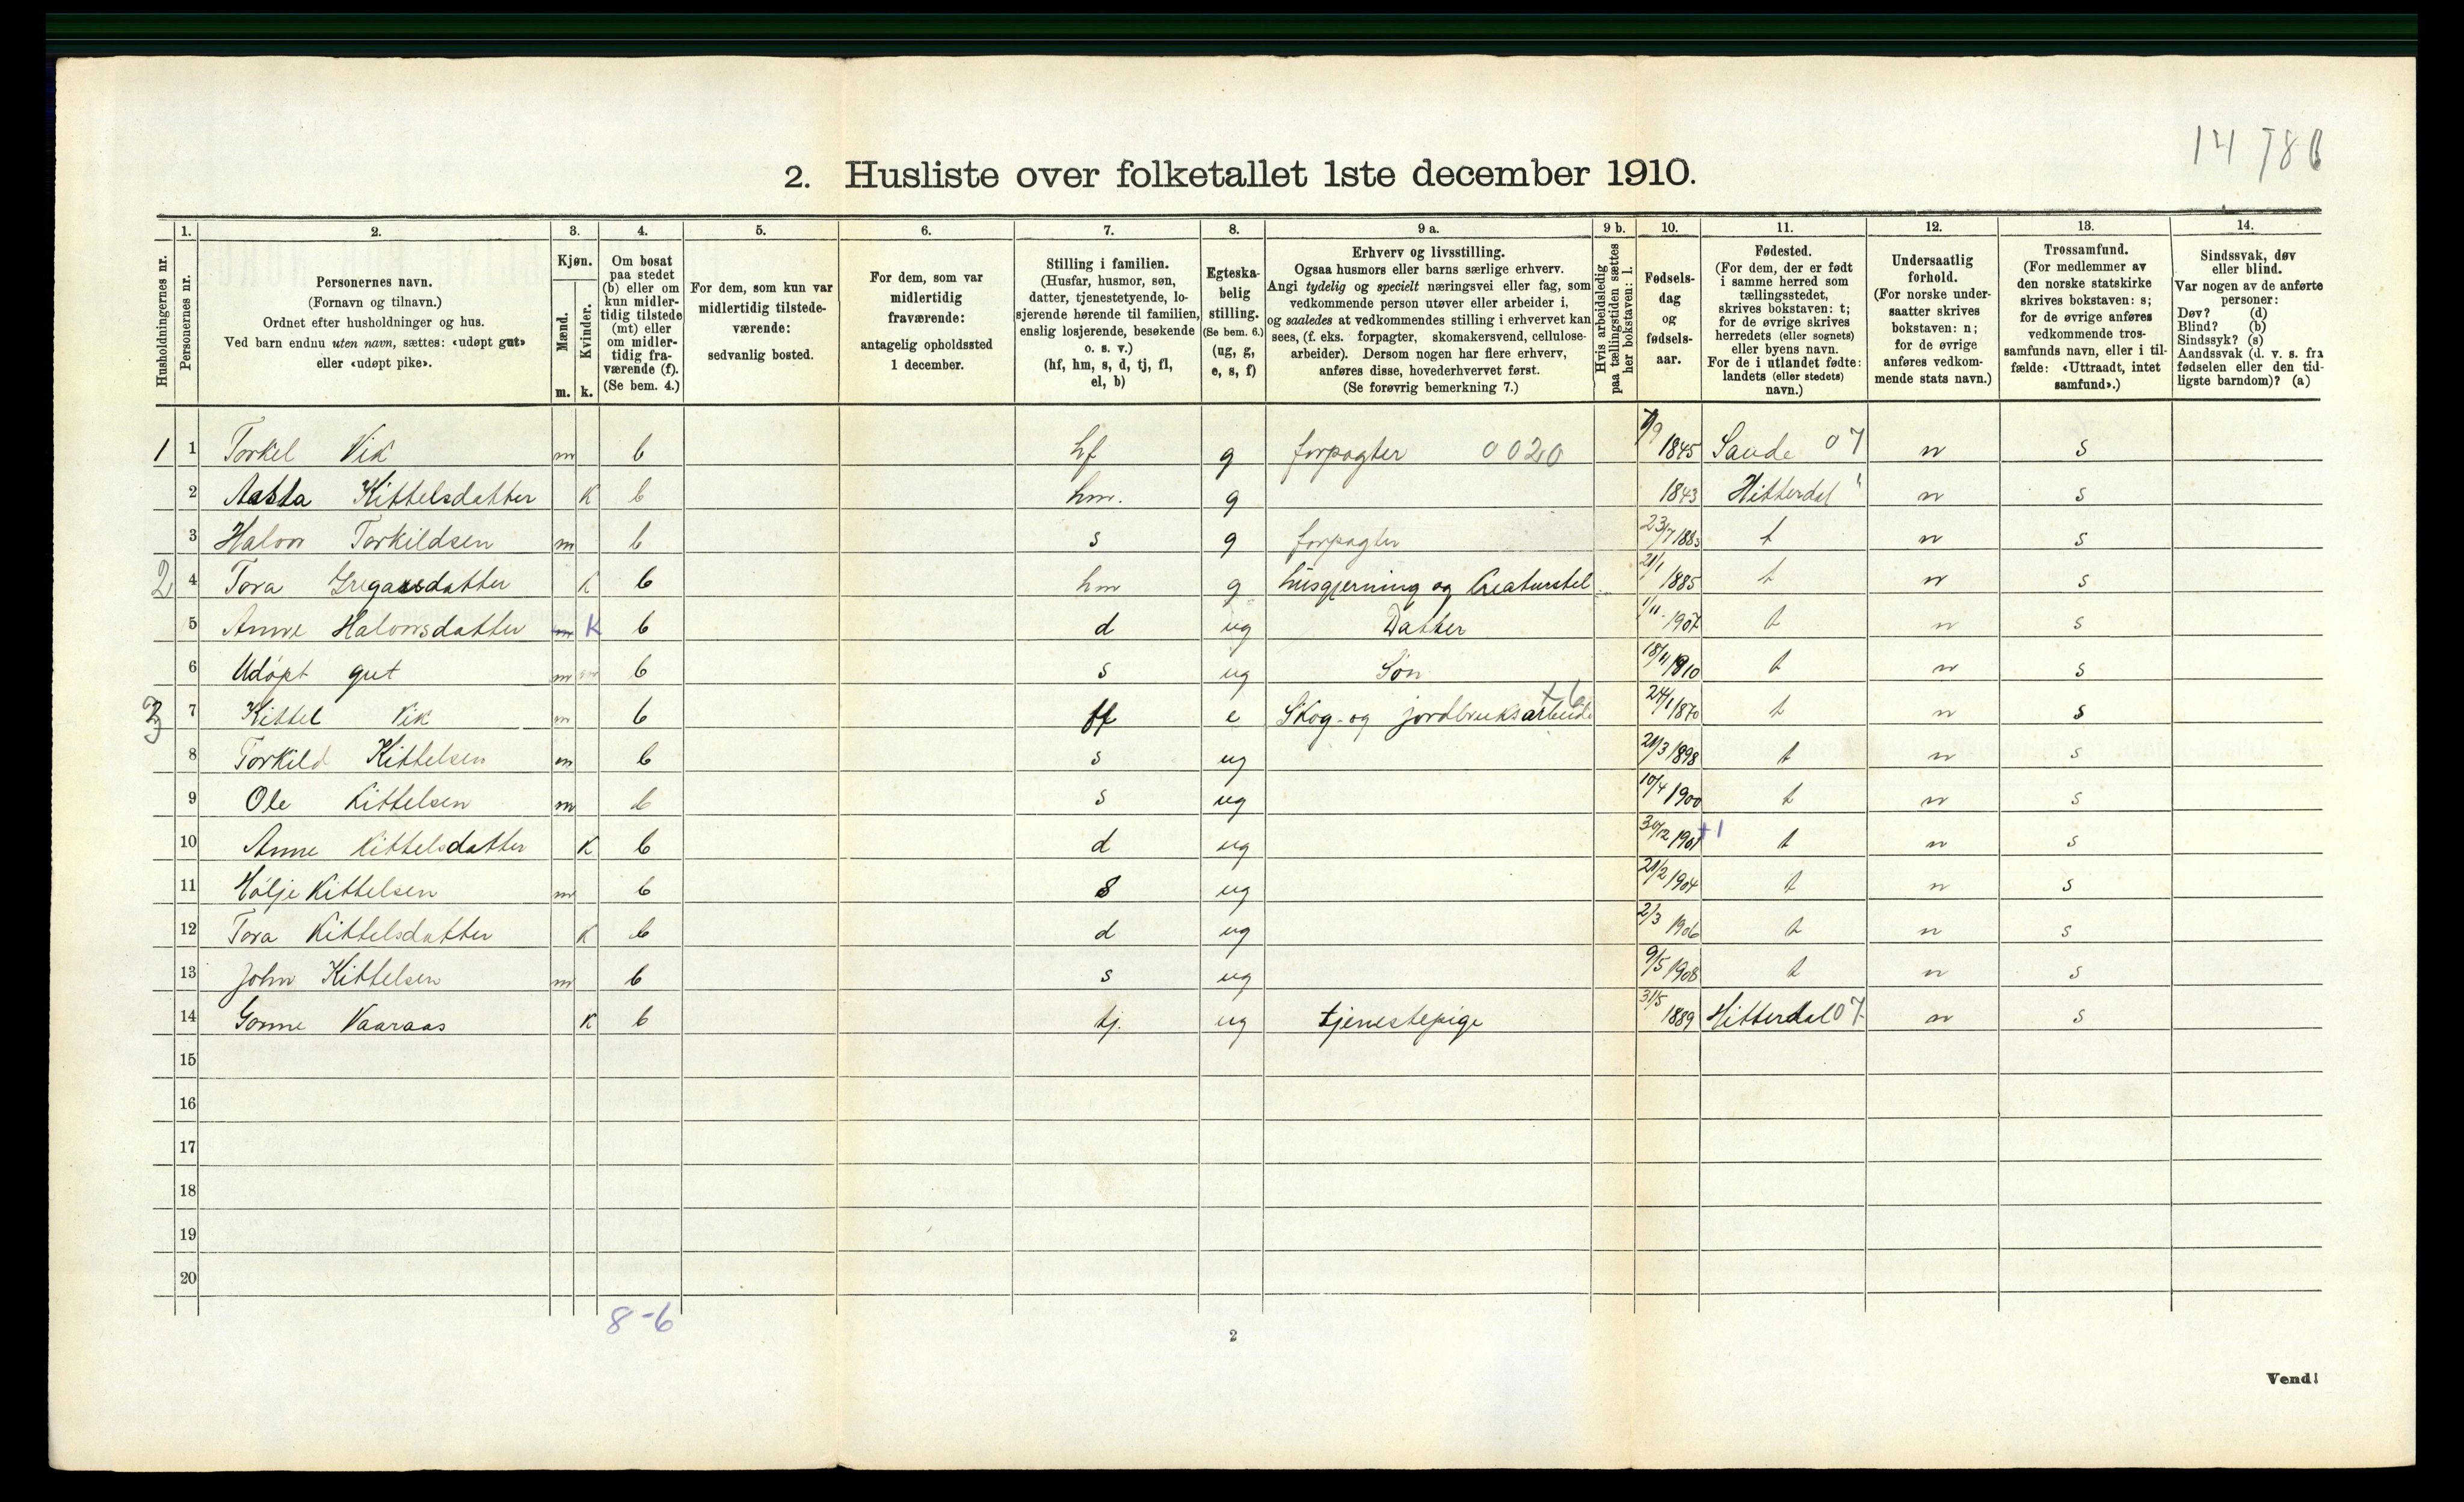 14 786
2. Husliste over folketallet 1ste december 1910.
Husholdningernes nr.
1.
Personernes nr.
2.
Personernes navn.
(Fornavn og tilnavn.)
Ordnet efter husholdninger og hus.
Ved barn endnu uten navn, sættes: «udøpt gut»
eller «udøpt pike».
3.
Kjøn.
Mænd.
Kvinder.
m. k.
4.
Om bosat
paa stedet
(b) eller om
kun midler-
tidig tilstede
(mt) eller
om midler-
tidig fra-
værende (f).
(Se bem. 4.)
5.
For dem, som kun var
midlertidig tilstede-
værende:
sedvanlig bosted.
6.
For dem, som var
midlertidig
fraværende:
antagelig opholdssted
1 december.
7.
Stilling i familien.
(Husfar, husmor, søn,
datter, tjenestetyende, lo-
sjerende hørende til familien,
enslig losjerende, besøkende
o. s. v.)
(hf, hm, s, d, tj, fl,
el, b)
8.
Egteska-
belig
stilling.
(Se bem. 6.)
(ug, g,
e, s, f)
9 a.
Erhverv og livsstilling.
Ogsaa husmors eller barns særlige erhverv.
Angi tydelig og specielt næringsvei eller fag, som
vedkommende person utøver eller arbeider i,
og saaledes at vedkommendes stilling i erhvervet kan
sees, (f. eks. forpagter, skomakersvend, cellulose-
arbeider). Dersom nogen har flere erhverv,
anføres disse, hovederhvervet først.
(Se forøvrig bemerkning 7.)
9 b.
Hvis arbeidsledig
paa tællingstiden sættes
her bokstaven: l.
10.
Fødsels-
dag
og
fødsels-
aar.
11.
Fødested.
(For dem, der er født
i samme herred som
tællingsstedet,
skrives bokstaven: t;
for de øvrige skrives
herredets (eller sognets)
eller byens navn.
For de i utlandet fødte:
landets (eller stedets)
navn.)
12.
Undersaatlig
forhold.
(For norske under-
saatter skrives
bokstaven: n;
for de øvrige
anføres vedkom-
mende stats navn.)
13.
Trossamfund.
(For medlemmer av
den norske statskirke
skrives bokstaven: s;
for de øvrige anføres
vedkommende tros-
samfunds navn, eller i til-
fælde: «Uttraadt, intet
samfund».)
14.
Sindssvak, døv
eller blind.
Var nogen av de anførte
personer:
Døv? (d)
Blind? (b)
Sindssyk? (s)
Aandssvak (d. v. s. fra
fødselen eller den tid-
ligste barndom)? (a)
1 1 Torkel Vik m b hf g forpagter 0020 7/9 1845 Saude 07 n s
2 Aasta Kittelsdatter K b hm. g 1843 Hitterdal " n s
3 Halvor Torkildsen m b s g forpagter 23/7 1883 t n s
2 4 Tora Gregarsdatter k b hm g husgjerning og Creaturstel 21/1 1885 t n s
5 Anne Halvorsdatter m K b d ug Datter 1/11 1907 t n s
6 Udøpt gut m b s ug Søn 18/11 1910 t n s
3 7 Kittel Vik m b ff e Skog- og jordbruksarbeide +6 24/1 1870 t n s
8 Torkild Kittelsen m b s ug 21/3 1898 t n s
9 Ole Kittelsen m b s ug 10/4 1900 t n s
10 Anne Kittelsdatter K b d ug 30/12 1901 +1 t n s
11 Hølje Kittelsen m b s ug 21/2 1904 t n s
12 Tora Kittelsdatter K b d ug 2/3 1906 t n s
13 John Kittelsen m b s ug 9/5 1908 t n s
14 Gonne Vaaraas K b tj. ug tjenestepige 31/5 1889 Hitterdal 07 n s
15
16
17
18
19
20
8-6
2
Vend!